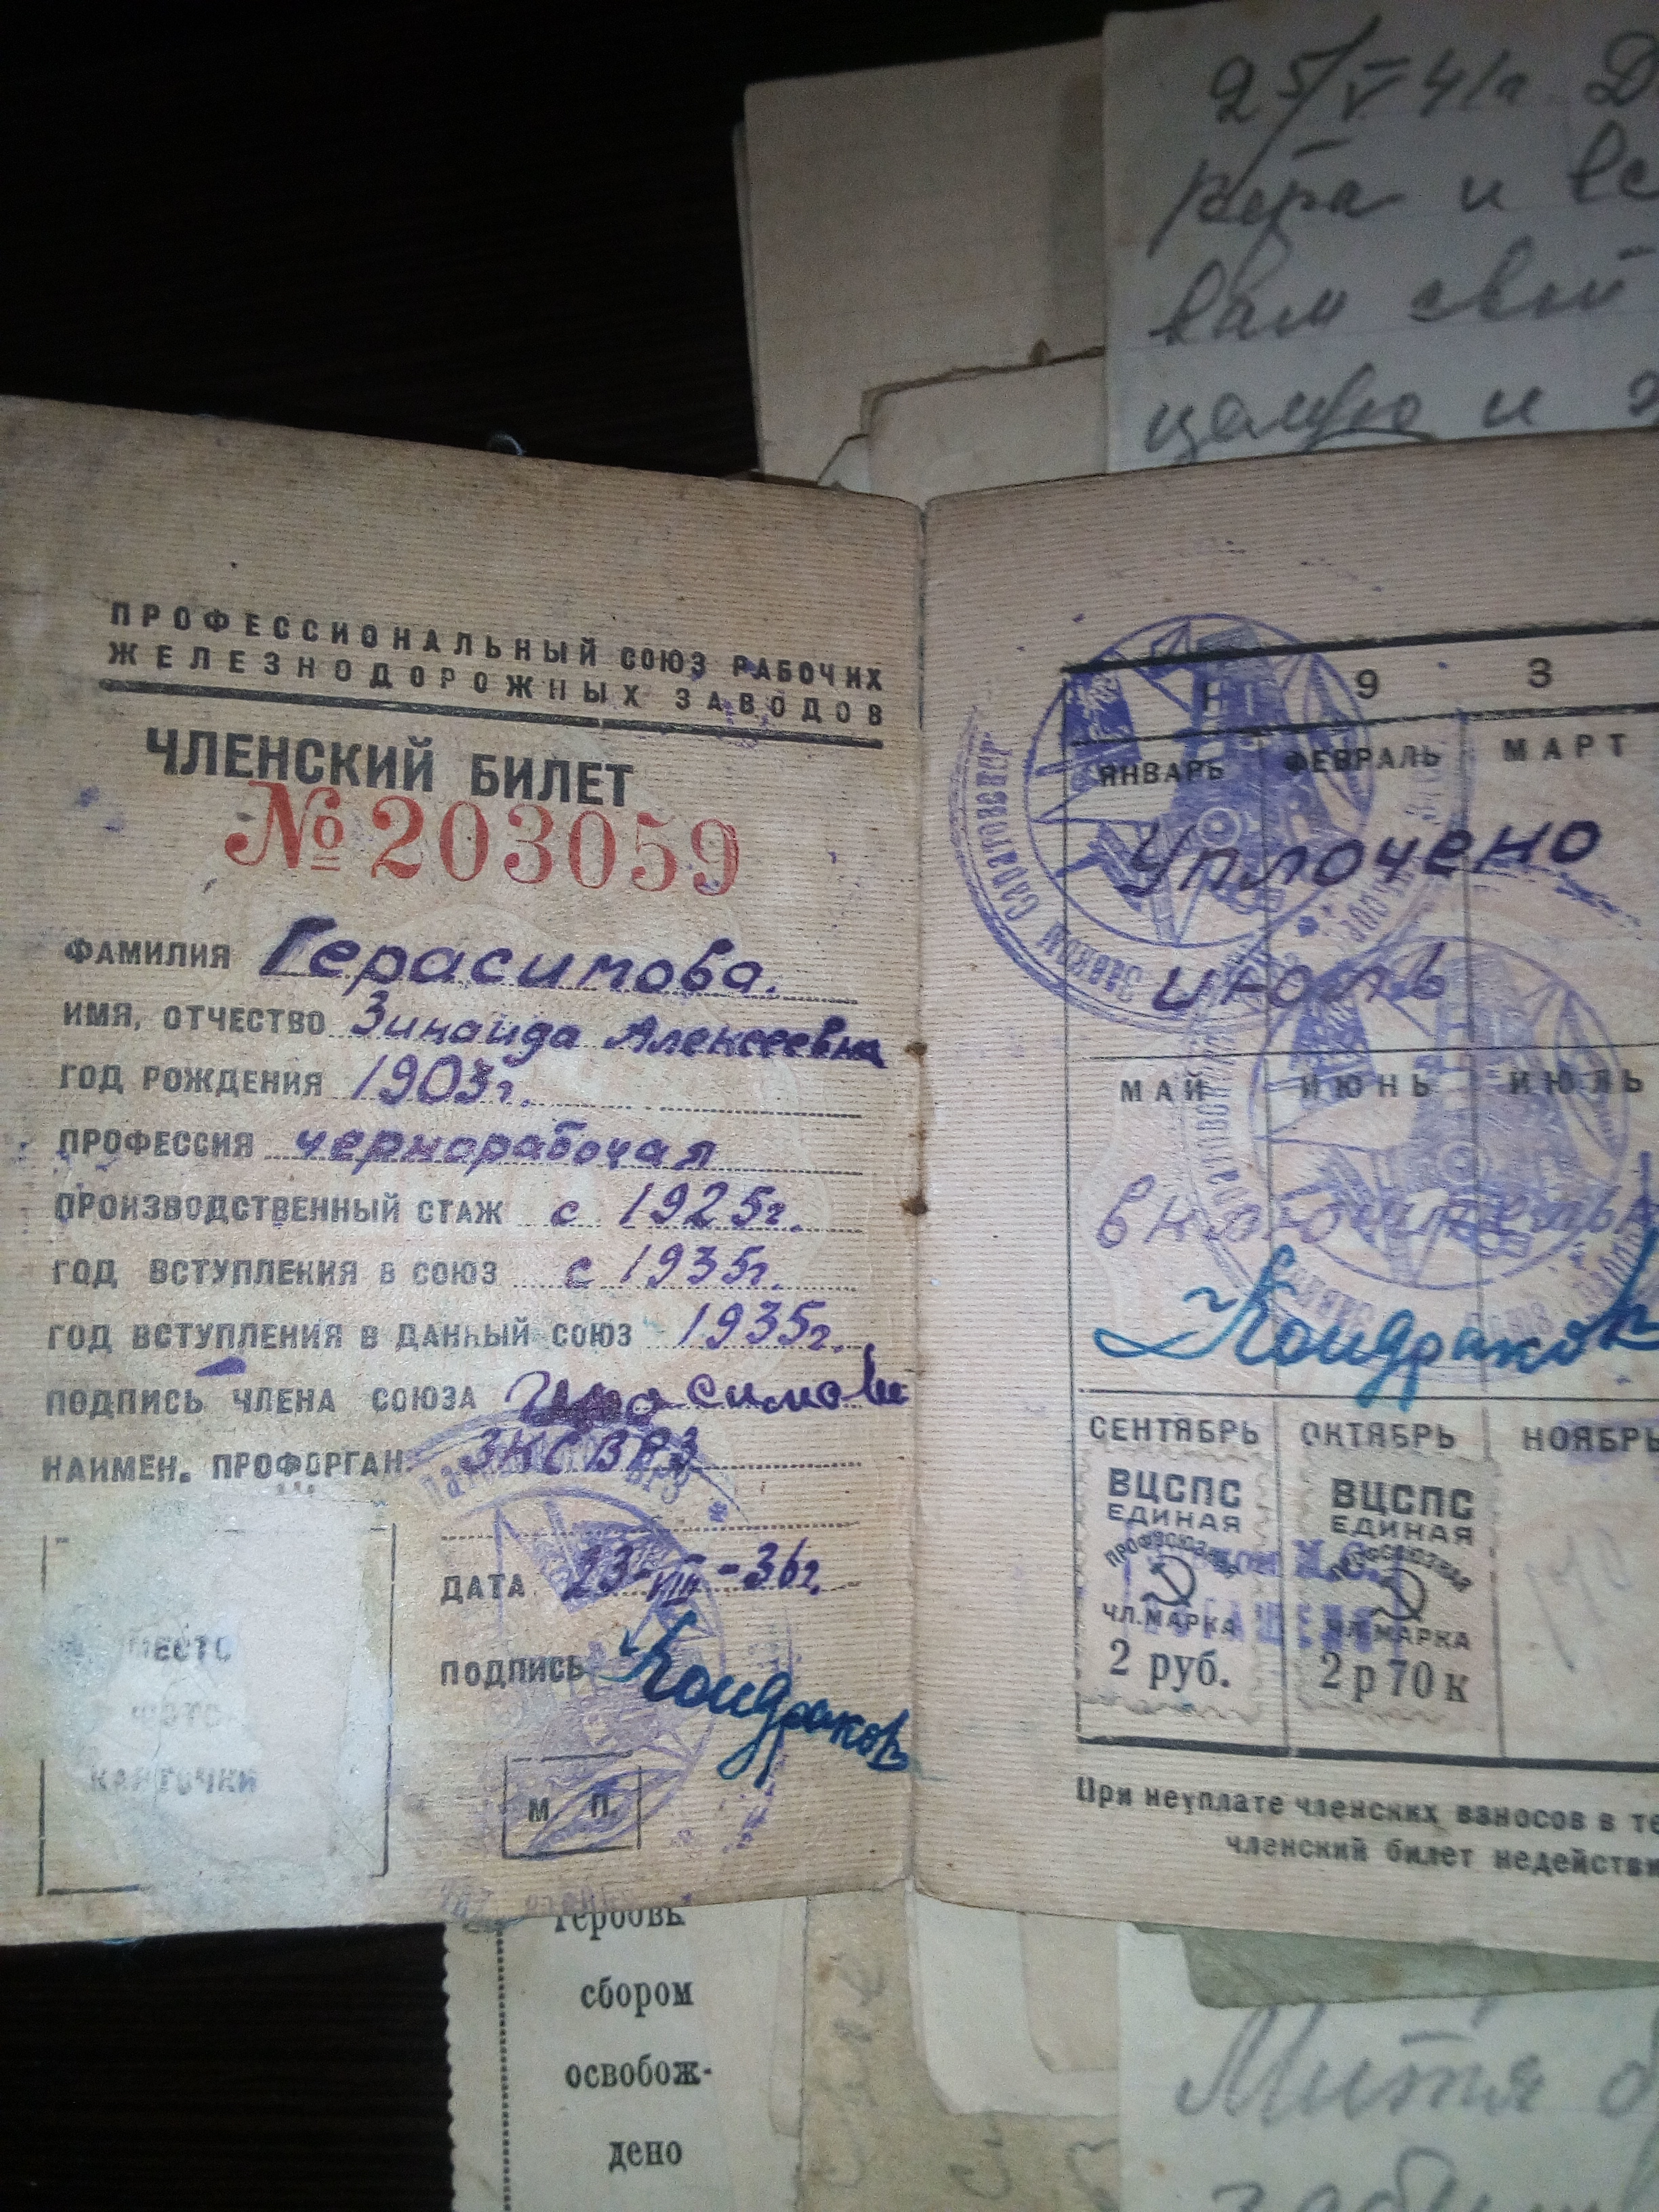 25/V 41г
и
вам свой
целую и
ПРОФЕССИОНАЛЬНЫЙ СОЮЗ РАБОЧИХ
ЖЕЛЕЗНОДОРОЖНЫХ ЗАВОДОВ
ЧЛЕНСКИЙ БИЛЕТ
№ 203059
ФАМИЛИЯ Герасимова.
ИМЯ, ОТЧЕСТВО Зинаида Алексеевна
ГОД РОЖДЕНИЯ 1903г.
ПРОФЕССИЯ чернорабочая
ПРОИЗВОДСТВЕННЫЙ СТАЖ с 1925г.
ГОД ВСТУПЛЕНИЯ В СОЮЗ с 1935г.
ГОД ВСТУПЛЕНИЯ В ДАННЫЙ СОЮЗ 1935г.
ПОДПИСЬ ЧЛЕНА СОЮЗА
НАИМЕН. ПРОФОРГАН. ЗКСВРЗ
ДАТА 23-VIII-36г.
ПОДПИСЬ Кондраков
МЕСТО
ФОТО
КАРТОЧКИ
М. П.
1 9 3
ЯНВАРЬ ФЕВРАЛЬ МАРТ
Уплочено
июль
МАЙ ИЮНЬ ИЮЛЬ
включительно
Кондраков
СЕНТЯБРЬ ОКТЯБРЬ НОЯБРЬ
ВЦСПС ВЦСПС
ЕДИНАЯ ЕДИНАЯ
ПРОФСОЮЗНАЯ ПРОФСОЮЗНАЯ
ЧЛ. МАРКА ЧЛ. МАРКА
2 руб. 2 р 70 к
При неуплате членских взносов в те
членский билет недействи
гербовь
сбором
освобож-
дено
Митя